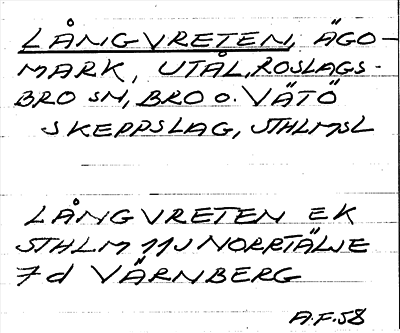 LÅNGVRETEN, ÄGO-
MARK, UTÅL, ROSLAGS-
BRO SN, BRO O. VÄTÖ
SKEPPSLAG, STHLMSL
LÅNGVRETEN EK
STHLM 11J NORRTÄLJE
7d VÄRNBERG
A.F. 58